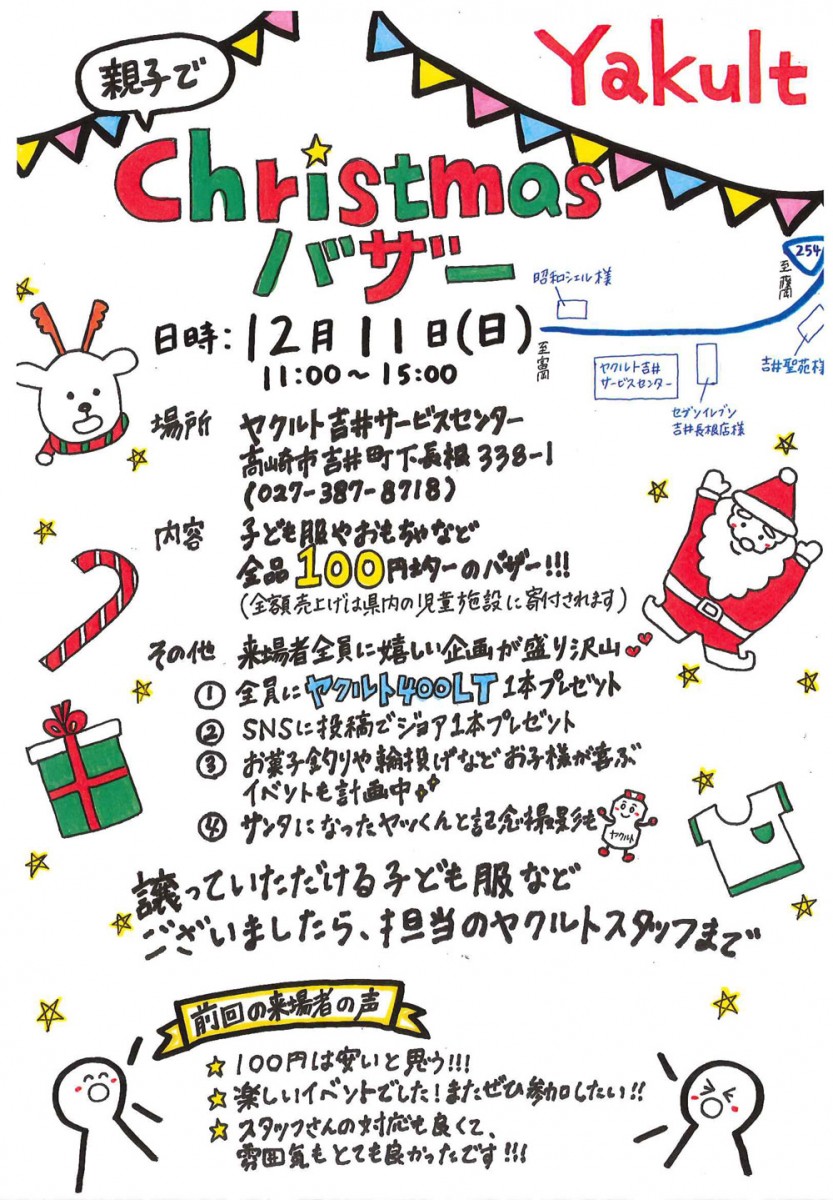 親子で
Yakult
Christmas
バザー
254
至藤岡
昭和シェル様
至富岡
ヤクルト吉井
サービスセンター
セブンイレブン
吉井長根店様
吉井聖苑様
日時: 12月11日(日)
11:00〜15:00
場所 ヤクルト吉井サービスセンター
高崎市吉井町下長根338-1
(027-387-8718)
内容 子ども服やおもちゃなど
全品100円均一のバザー!!!
(全額売上げは県内の児童施設に寄付されます)
その他 来場者全員に嬉しい企画が盛り沢山
① 全員にヤクルト400LT 1本プレゼント
② SNSに投稿でジョア1本プレゼント
③ お菓子釣りや輪投げなどお子様が喜ぶ
イベントも計画中
④ サンタになったヤッくんと記念撮影も
ヤクルト
譲っていただける子ども服など
ございましたら、担当のヤクルトスタッフまで
前回の来場者の声
100円は安いと思う!!!
楽しいイベントでした!またぜひ参加したい!!
スタッフさんの対応も良くて、
雰囲気もとても良かったです!!!